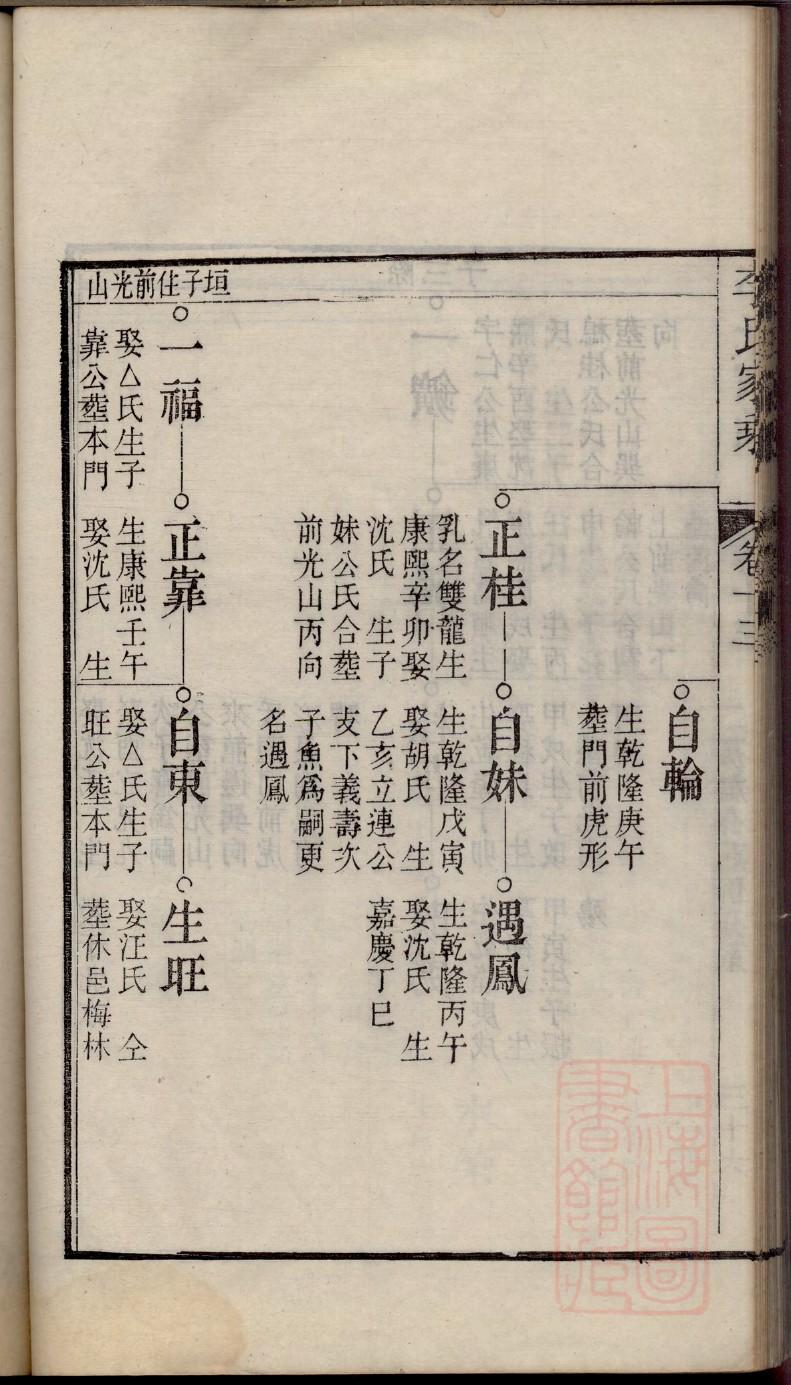 李氏家乘
卷十三
自輪
生乾隆庚午
葬門前虎形
正桂
乳名雙龍生
康熙辛卯娶
沈氏 生子
妹公氏合葬
前光山丙向
自妹
生乾隆戊寅
娶胡氏 生
乙亥立連公
支下義壽次
子魚爲嗣更
名遇鳳
遇鳳
生乾隆丙午
娶沈氏 生
嘉慶丁巳
垣子住前光山
一福
娶△氏生子
靠公葬本門
正靠
生康熙壬午
娶沈氏 生
自東
娶△氏生子
旺公葬本門
生旺
娶汪氏 仝
葬休邑梅林
上海圖
書館藏